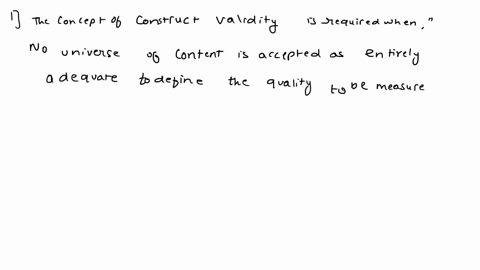 1] The Concept of Construct Validity is required when, "
No universe of Content is accepted as entirely
adequate to define the quality to be measure